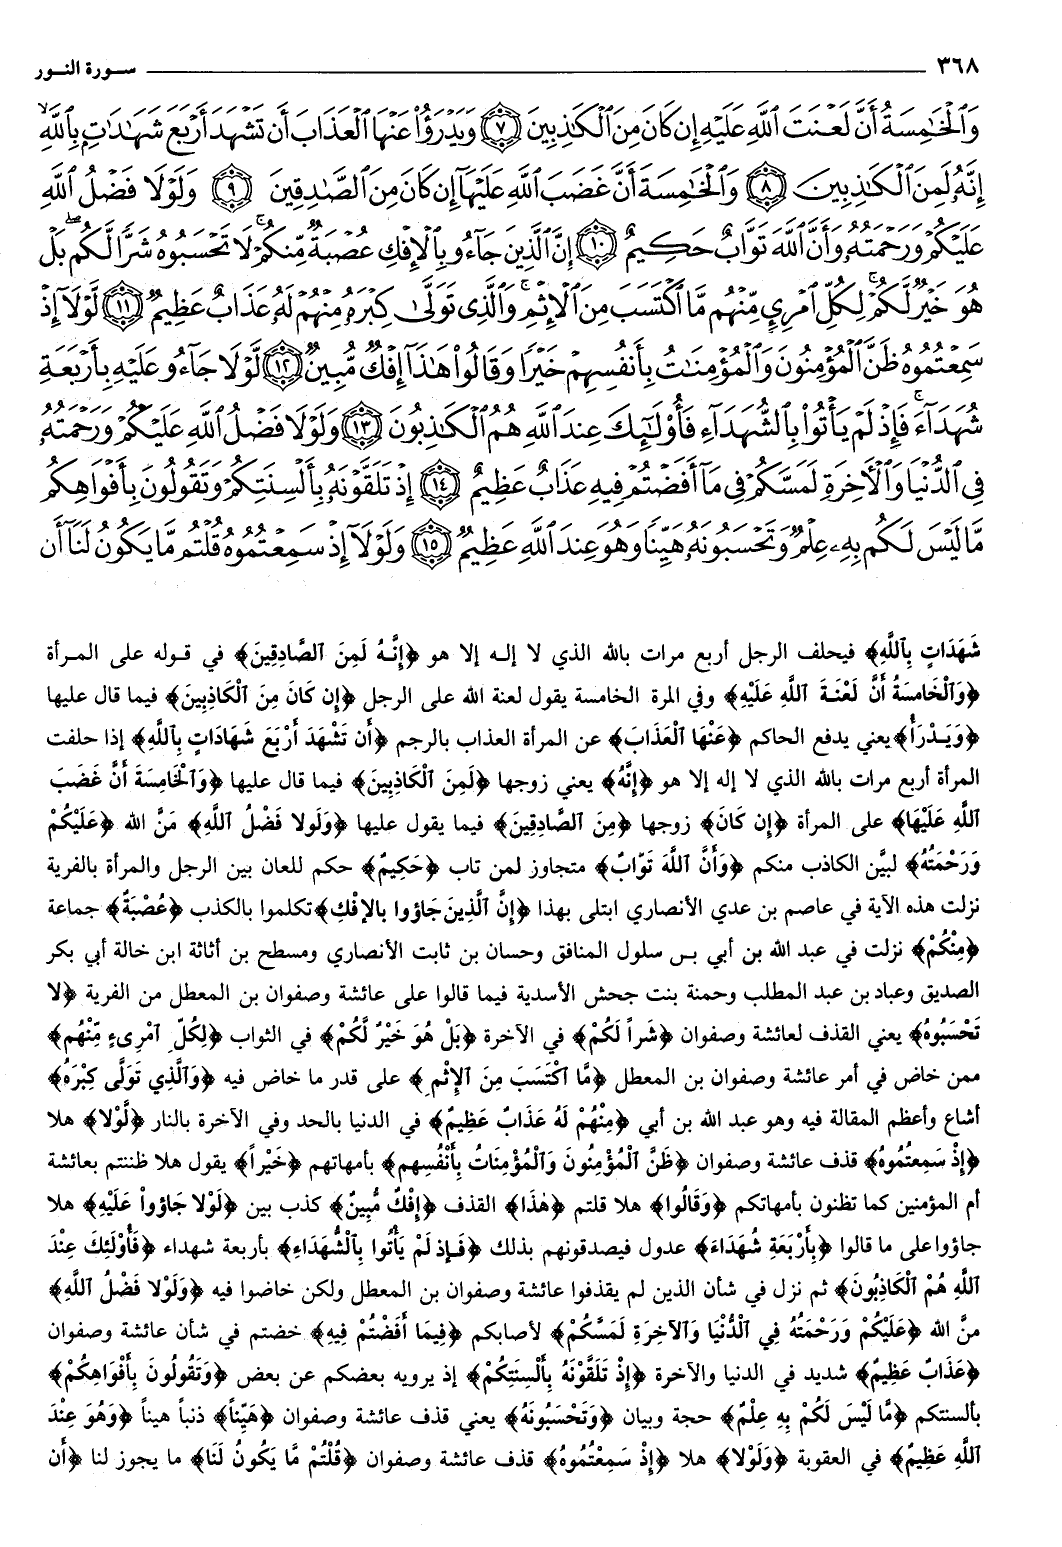 ٣٦٨ سورة النور
وَٱلْخَٰمِسَةُ أَنَّ لَعْنَتَ ٱللَّهِ عَلَيْهِ إِن كَانَ مِنَ ٱلْكَٰذِبِينَ ۝٧ وَيَدْرَؤُا۟ عَنْهَا ٱلْعَذَابَ أَن تَشْهَدَ أَرْبَعَ شَهَٰدَٰتٍۭ بِٱللَّهِ ۙ
إِنَّهُۥ لَمِنَ ٱلْكَٰذِبِينَ ۝٨ وَٱلْخَٰمِسَةَ أَنَّ غَضَبَ ٱللَّهِ عَلَيْهَآ إِن كَانَ مِنَ ٱلصَّٰدِقِينَ ۝٩ وَلَوْلَا فَضْلُ ٱللَّهِ
عَلَيْكُمْ وَرَحْمَتُهُۥ وَأَنَّ ٱللَّهَ تَوَّابٌ حَكِيمٌ ۝١٠ إِنَّ ٱلَّذِينَ جَآءُو بِٱلْإِفْكِ عُصْبَةٌ مِّنكُمْ ۚ لَا تَحْسَبُوهُ شَرًّا لَّكُم ۖ بَلْ
هُوَ خَيْرٌ لَّكُمْ ۚ لِكُلِّ ٱمْرِئٍ مِّنْهُم مَّا ٱكْتَسَبَ مِنَ ٱلْإِثْمِ ۚ وَٱلَّذِى تَوَلَّىٰ كِبْرَهُۥ مِنْهُمْ لَهُۥ عَذَابٌ عَظِيمٌ ۝١١ لَّوْلَآ إِذْ
سَمِعْتُمُوهُ ظَنَّ ٱلْمُؤْمِنُونَ وَٱلْمُؤْمِنَٰتُ بِأَنفُسِهِمْ خَيْرًا وَقَالُوا۟ هَٰذَآ إِفْكٌ مُّبِينٌ ۝١٢ لَّوْلَا جَآءُو عَلَيْهِ بِأَرْبَعَةِ
شُهَدَآءَ ۚ فَإِذْ لَمْ يَأْتُوا۟ بِٱلشُّهَدَآءِ فَأُو۟لَٰٓئِكَ عِندَ ٱللَّهِ هُمُ ٱلْكَٰذِبُونَ ۝١٣ وَلَوْلَا فَضْلُ ٱللَّهِ عَلَيْكُمْ وَرَحْمَتُهُۥ
فِى ٱلدُّنْيَا وَٱلْءَاخِرَةِ لَمَسَّكُمْ فِى مَآ أَفَضْتُمْ فِيهِ عَذَابٌ عَظِيمٌ ۝١٤ إِذْ تَلَقَّوْنَهُۥ بِأَلْسِنَتِكُمْ وَتَقُولُونَ بِأَفْوَاهِكُم
مَّا لَيْسَ لَكُم بِهِۦ عِلْمٌ وَتَحْسَبُونَهُۥ هَيِّنًا وَهُوَ عِندَ ٱللَّهِ عَظِيمٌ ۝١٥ وَلَوْلَآ إِذْ سَمِعْتُمُوهُ قُلْتُم مَّا يَكُونُ لَنَآ أَن
شَهَدَاتٍ بِٱللَّهِ﴾ فيحلف الرجل أربع مرات بالله الذي لا إلـه إلا هو ﴿إِنَّـهُ لَمِنَ ٱلصَّادِقِينَ﴾ في قوله على المرأة
﴿وَٱلْخَامِسَةُ أَنَّ لَعْنَةَ ٱللَّهِ عَلَيْهِ﴾ وفي المرة الخامسة يقول لعنة الله على الرجل ﴿إِن كَانَ مِنَ ٱلْكَاذِبِينَ﴾ فيما قال عليها
﴿وَيَدْرَأُ﴾ يعني يدفع الحاكم ﴿عَنْهَا ٱلْعَذَابَ﴾ عن المرأة العذاب بالرجم ﴿أَن تَشْهَدَ أَرْبَعَ شَهَادَاتٍ بِٱللَّهِ﴾ إذا حلفت
المرأة أربع مرات بالله الذي لا إله إلا هو ﴿إِنَّهُ﴾ يعني زوجها ﴿لَمِنَ ٱلْكَاذِبِينَ﴾ فيما قال عليها ﴿وَٱلْخَامِسَةَ أَنَّ غَضَبَ
ٱللَّهِ عَلَيْهَا﴾ على المرأة ﴿إِن كَانَ﴾ زوجها ﴿مِنَ ٱلصَّادِقِينَ﴾ فيما يقول عليها ﴿وَلَولا فَضْلُ ٱللَّهِ﴾ مَنَّ الله ﴿عَلَيْكُمْ
وَرَحْمَتُهُ﴾ لبيَّن الكاذب منكم ﴿وَأَنَّ ٱللَّهَ تَوّابٌ﴾ متجاوز لمن تاب ﴿حَكِيمٌ﴾ حكم للعان بين الرجل والمرأة بالفرية
نزلت هذه الآية في عاصم بن عدي الأنصاري ابتلى بهذا ﴿إِنَّ ٱلَّذِينَ جَاؤوا بالإفْكِ﴾ تكلموا بالكذب ﴿عُصْبَةٌ﴾ جماعة
﴿مِنْكُمْ﴾ نزلت في عبد الله بن أبي بـس سلول المنافق وحسان بن ثابت الأنصاري ومسطح بن أثاثة ابن خالة أبي بكر
الصديق وعباد بن عبد المطلب وحمنة بنت جحش الأسدية فيما قالوا على عائشة وصفوان بن المعطل من الفرية ﴿لا
تَحْسَبُوهُ﴾ يعني القذف لعائشة وصفوان ﴿شَراً لَكُمْ﴾ في الآخرة ﴿بَلْ هُوَ خَيْرٌ لَّكُمْ﴾ في الثواب ﴿لِكُلِّ ٱمْرِىءٍ مِّنْهُم﴾
ممن خاض في أمر عائشة وصفوان بن المعطل ﴿مَّا ٱكْتَسَبَ مِنَ ٱلإِثْمِ﴾ على قدر ما خاض فيه ﴿وَٱلَّذِي تَوَلَّى كِبْرَهُ﴾
أشاع وأعظم المقالة فيه وهو عبد الله بن أبي ﴿مِنْهُمْ لَهُ عَذَابٌ عَظِيمٌ﴾ في الدنيا بالحد وفي الآخرة بالنار ﴿لَّوْلا﴾ هلا
﴿إِذْ سَمِعتُمُوهُ﴾ قذف عائشة وصفوان ﴿ظَنَّ ٱلْمُؤْمِنُونَ وَٱلْمُؤْمِنَاتُ بِأَنْفُسِهِم﴾ بأمهاتهم ﴿خَيْراً﴾ يقول هلا ظننتم بعائشة
أم المؤمنين كما تظنون بأمهاتكم ﴿وَقَالُوا﴾ هلا قلتم ﴿هٰذَا﴾ القذف ﴿إِفْكٌ مُّبِينٌ﴾ كذب بين ﴿لَوْلا جَاؤوا عَلَيْهِ﴾ هلا
جاؤوا على ما قالوا ﴿بِأَرْبَعَةِ شُهَدَاءَ﴾ عدول فيصدقونهم بذلك ﴿فَـإِذ لَمْ يَأْتُوا بِٱلْشُّهَدَاءِ﴾ بأربعة شهداء ﴿فَأُوْلَئِكَ عِنْدَ
ٱللَّهِ هُمْ ٱلْكَاذِبُونَ﴾ ثم نزل في شأن الذين لم يقذفوا عائشة وصفوان بن المعطل ولكن خاضوا فيه ﴿وَلَوْلا فَضْلُ ٱللَّهِ﴾
منَّ الله ﴿عَلَيْكُمْ وَرَحْمَتُهُ فِي ٱلْدُّنْيَا وَٱلآخِرَةِ لَمَسَّكُمْ﴾ لأصابكم ﴿فِيمَا أَفَضْتُمْ فِيهِ﴾ خضتم في شأن عائشة وصفوان
﴿عَذَابٌ عَظِيمٌ﴾ شديد في الدنيا والآخرة ﴿إِذْ تَلَقَّوْنَهُ بِأَلْسِنَتِكُمْ﴾ إذ يرويه بعضكم عن بعض ﴿وَتَقُولُونَ بِأَفْوَاهِكُمْ﴾
بألسنتكم ﴿مَّا لَيْسَ لَكُمْ بِهِ عِلْمٌ﴾ حجة وبيان ﴿وَتَحْسَبُونَهُ﴾ يعني قذف عائشة وصفوان ﴿هَيِّناً﴾ ذنباً هيناً ﴿وَهُوَ عِنْدَ
ٱللَّهِ عَظِيمٌ﴾ في العقوبة ﴿وَلَوْلا﴾ هلا ﴿إِذْ سَمِعْتُمُوهُ﴾ قذف عائشة وصفوان ﴿قُلْتُمْ مَّا يَكُونُ لَنَا﴾ ما يجوز لنا ﴿أَن